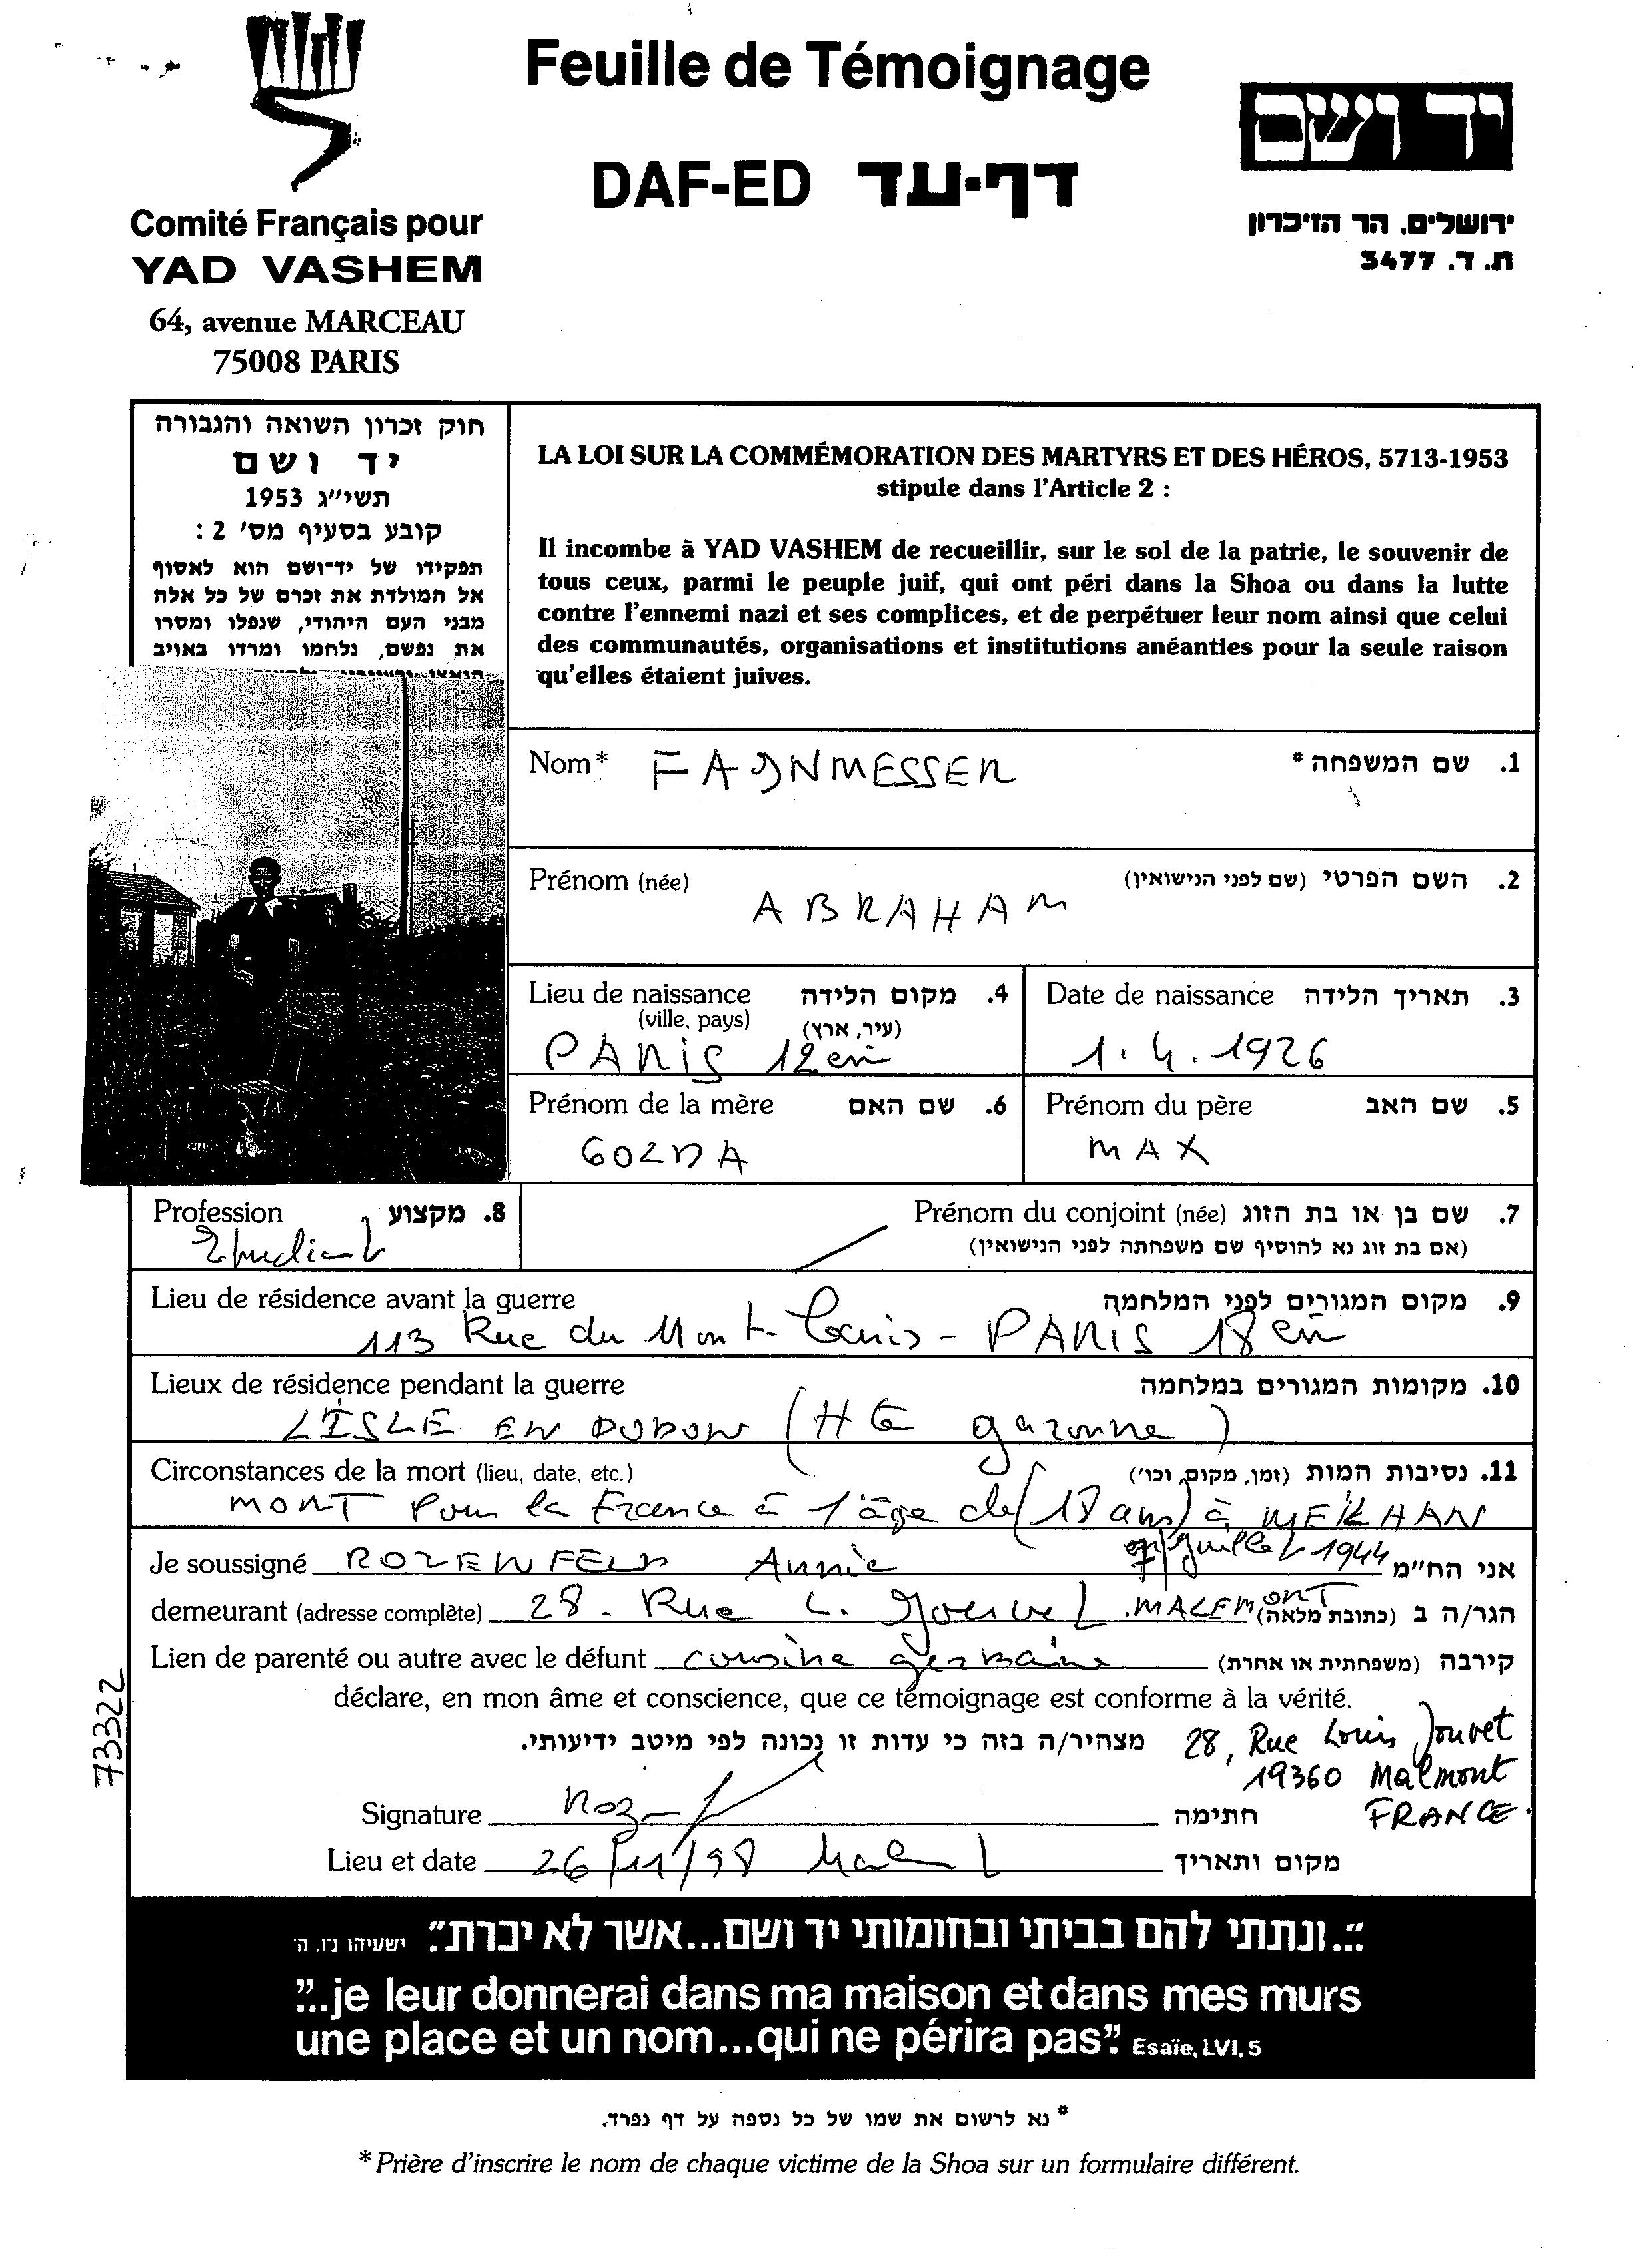 Feuille de Témoignage
DAF-ED דף-עד
יד ושם
ירושלים. הר הזיכרון
ת. ד. 3477
Comité Français pour
YAD VASHEM
64, avenue MARCEAU
75008 PARIS
חוק זכרון השואה והגבורה
יד ושם
תשי״ג 1953
קובע בסעיף מס׳ 2 :
תפקידו של יד־ושם הוא לאסוף
אל המולדת את זכרם של כל אלה
מבני העם היהודי, שנפלו ומסרו
את נפשם, נלחמו ומרדו באויב
LA LOI SUR LA COMMÉMORATION DES MARTYRS ET DES HÉROS, 5713-1953
stipule dans l'Article 2 :
Il incombe à YAD VASHEM de recueillir, sur le sol de la patrie, le souvenir de
tous ceux, parmi le peuple juif, qui ont péri dans la Shoa ou dans la lutte
contre l'ennemi nazi et ses complices, et de perpétuer leur nom ainsi que celui
des communautés, organisations et institutions anéanties pour la seule raison
qu'elles étaient juives.
Nom* FAJNMESSER 1. שם המשפחה *
Prénom (née) 2. השם הפרטי (שם לפני הנישואין)
ABRAHAM
Lieu de naissance 4. מקום הלידה
(ville, pays) (עיר, ארץ)
PARIS 12em
Date de naissance 3. תאריך הלידה
1.4.1926
Prénom de la mère 6. שם האם
GOLDA
Prénom du père 5. שם האב
MAX
Profession 8. מקצוע
Etudiant
Prénom du conjoint (née) 7. שם בן או בת הזוג
(אם בת זוג נא להוסיף שם משפחתה לפני הנישואין)
Lieu de résidence avant la guerre 9. מקום המגורים לפני המלחמה
113 Rue du Mont-Cenis - PARIS 18em
Lieux de résidence pendant la guerre 10. מקומות המגורים במלחמה
L'ISLE EN DODON (HE garonne)
Circonstances de la mort (lieu, date, etc.) 11. נסיבות המות (זמן, מקום, וכו')
MORT Pour la France à l'âge de (18 ans) à MEILHAN
Je soussigné ROZENFELD Annie 7 Juillet 1944 אני הח״מ
demeurant (adresse complète) 28. Rue L. Jouvet .MALEMONT הגר/ה ב (כתובת מלאה)
Lien de parenté ou autre avec le défunt cousine germaine קירבה (משפחתית או אחרת)
déclare, en mon âme et conscience, que ce témoignage est conforme à la vérité.
מצהיר/ה בזה כי עדות זו נכונה לפי מיטב ידיעותי.
28, Rue Louis Jouvet
19360 Malmont
FRANCE.
Signature חתימה
Lieu et date 26/11/98 מקום ותאריך
73322
״...ונתתי להם בביתי ובחומותי יד ושם...אשר לא יכרת״. ישעיהו נ״ו, ה׳
"...je leur donnerai dans ma maison et dans mes murs
une place et un nom...qui ne périra pas". Esaïe, LVI, 5
* נא לרשום את שמו של כל נספה על דף נפרד.
* Prière d'inscrire le nom de chaque victime de la Shoa sur un formulaire différent.